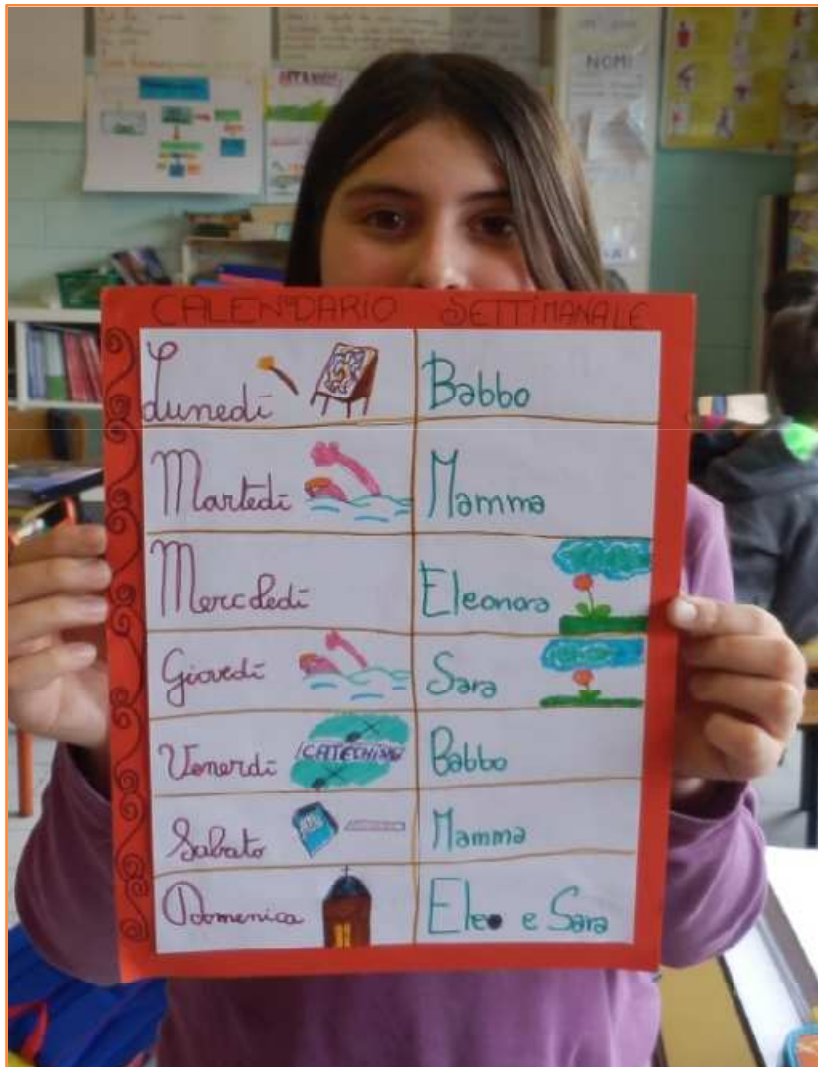 NOMI
CALENDARIO SETTIMANALE
Lunedì Babbo
Martedì Mamma
Mercoledì Eleonora
Giovedì Sara
Venerdì CATECHISMO Babbo
Sabato Mamma
Domenica Eleo e Sara